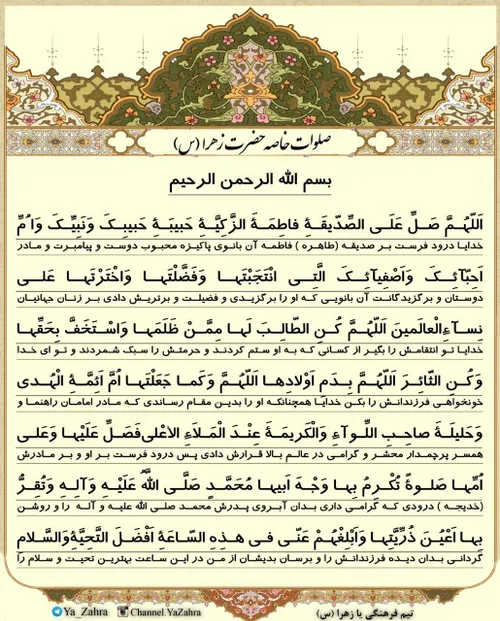 صلوات خاصه حضرت زهرا (س)
بسم الله الرحمن الرحیم
اَللّهُمَّ صَلِّ عَلَی الصِّدّیقَةِ فاطِمَةَ الزَّکِیَّةِ حَبیبَةِ حَبیبِکَ وَنَبِیِّکَ وَاُمِّ
خدایا درود فرست بر صدیقه (طاهره ) فاطمه آن بانوی پاکیزه محبوب دوست و پیامبرت و مادر
اَحِبّآئِکَ وَاَصْفِیآئِکَ الَّتِی انْتَجَبْتَها وَفَضَّلْتَها وَاخْتَرْتَها عَلی
دوستان و برگزیدگانت آن بانویی که او را برگزیدی و فضیلت و برتریش دادی بر زنان جهانیان
نِسآءِالْعالَمینَ اَللّهُمَّ کُنِ الطّالِبَ لَها مِمَّنْ ظَلَمَها وَاسْتَخَفَّ بِحَقِّها
خدایا تو انتقامش را بگیر از کسانی که به او ستم کردند و حرمتش را سبک شمردند و تو ای خدا
وَکُنِ الثّائِرَ اَللّهُمَّ بِدَمِ اَوْلادِها اَللّهُمَّ وَکَما جَعَلْتَها اُمَّ اَئِمَّةِ الْهُدی
خونخواهی فرزندانش را بکن خدایا همچنانکه او را بدین مقام رساندی که مادر امامان راهنما و
وَحَلیلَةَ صاحِبِ اللِّوآءِ وَالْکَریمَةَ عِنْدَ الْمَلاَءِ الاْعْلی فَصَلِّ عَلَیْها وَعَلی
همسر پرچمدار محشر و گرامی در عالم بالا قرارش دادی پس درود فرست بر او و بر مادرش
اُمِّها صَلوةً تُکْرِمُ بِها وَجْهَ اَبیها مُحَمَّدٍ صَلَّی اللّهُ عَلَیْهِ وَآلِهِ وَتُقِرُّ
(خدیجه ) درودی که گرامی داری بدان آبروی پدرش محمد صلی الله علیه و آله را و روشن
بِها اَعْیُنَ ذُرِّیَّتِها وَاَبْلِغْهُمْ عَنّی فی هذِهِ السّاعَةِ اَفْضَلَ التَّحِیَّةِوَالسَّلامِ
گردانی بدان دیده فرزندانش را و برسان بدیشان از من در این ساعت بهترین تحیت و سلام را
تیم فرهنگی یا زهرا (س) Channel.YaZahra Ya_Zahra